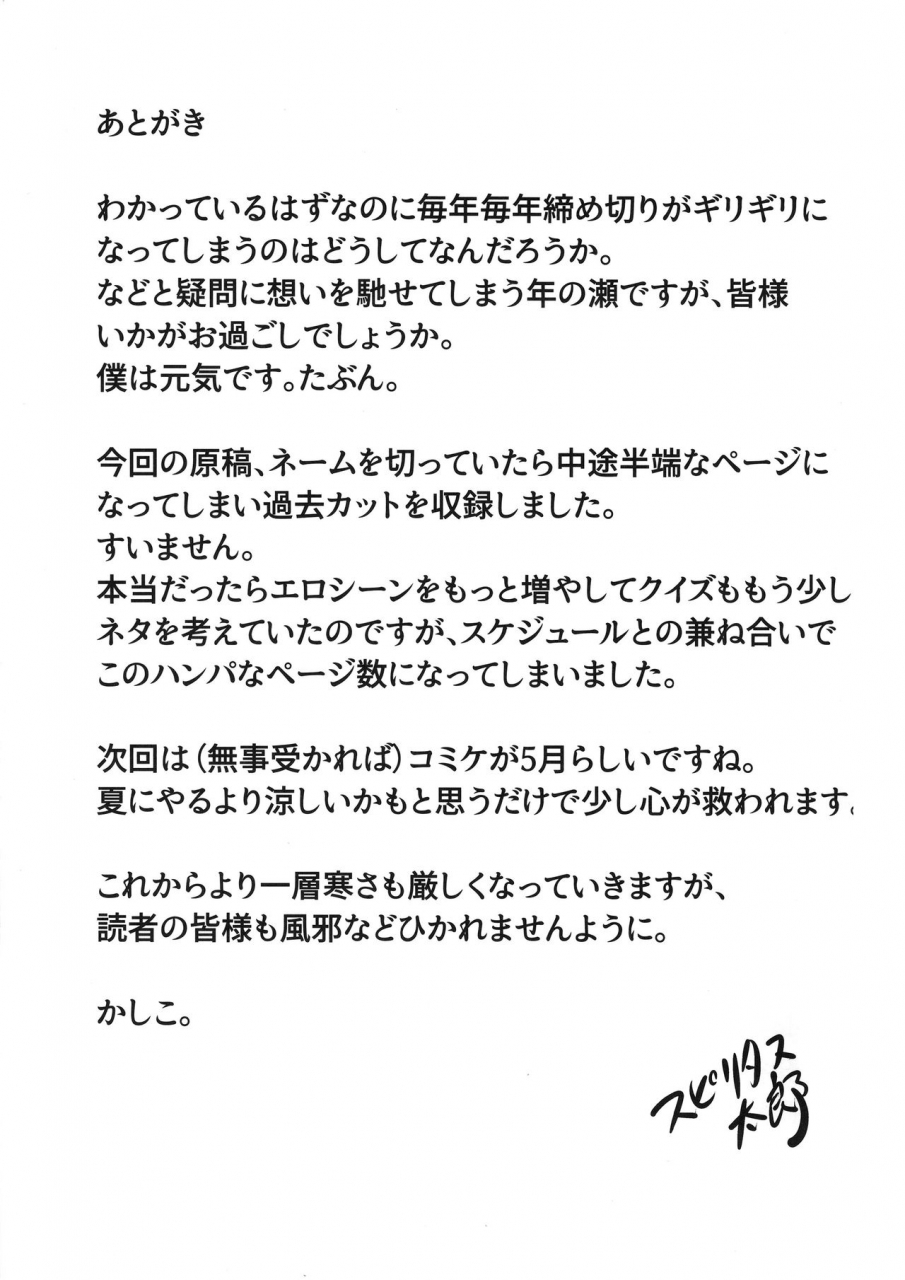 あとがき
わかっているはずなのに毎年毎年締め切りがギリギリに
なってしまうのはどうしてなんだろうか。
などと疑問に想いを馳せてしまう年の瀬ですが、皆様
いかがお過ごしでしょうか。
僕は元気です。たぶん。
今回の原稿、ネームを切っていたら中途半端なページに
なってしまい過去カットを収録しました。
すいません。
本当だったらエロシーンをもっと増やしてクイズももう少し
ネタを考えていたのですが、スケジュールとの兼ね合いで
このハンパなページ数になってしまいました。
次回は（無事受かれば）コミケが5月らしいですね。
夏にやるより涼しいかもと思うだけで少し心が救われます。
これからより一層寒さも厳しくなっていきますが、
読者の皆様も風邪などひかれませんように。
かしこ。
スピリタス
太郎